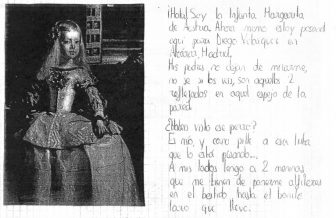 ¡Hola! Soy la Infanta Margarita
de Austria. Ahora mismo estoy posando
aquí para Diego Velázquez en
Alcázar, Madrid.
Mis padres no dejan de mirarme,
no se si los ves, son aquellos 2
reflejados en aquel espejo de la
pared.
¿Habéis visto ese perro?
Es mio, y como pille a esa
que lo está pisando...
A mis lados tengo a 2 meninas
que me tienen de ponerme alfileres
en el vestido hasta el bonito
lazo que llevo.